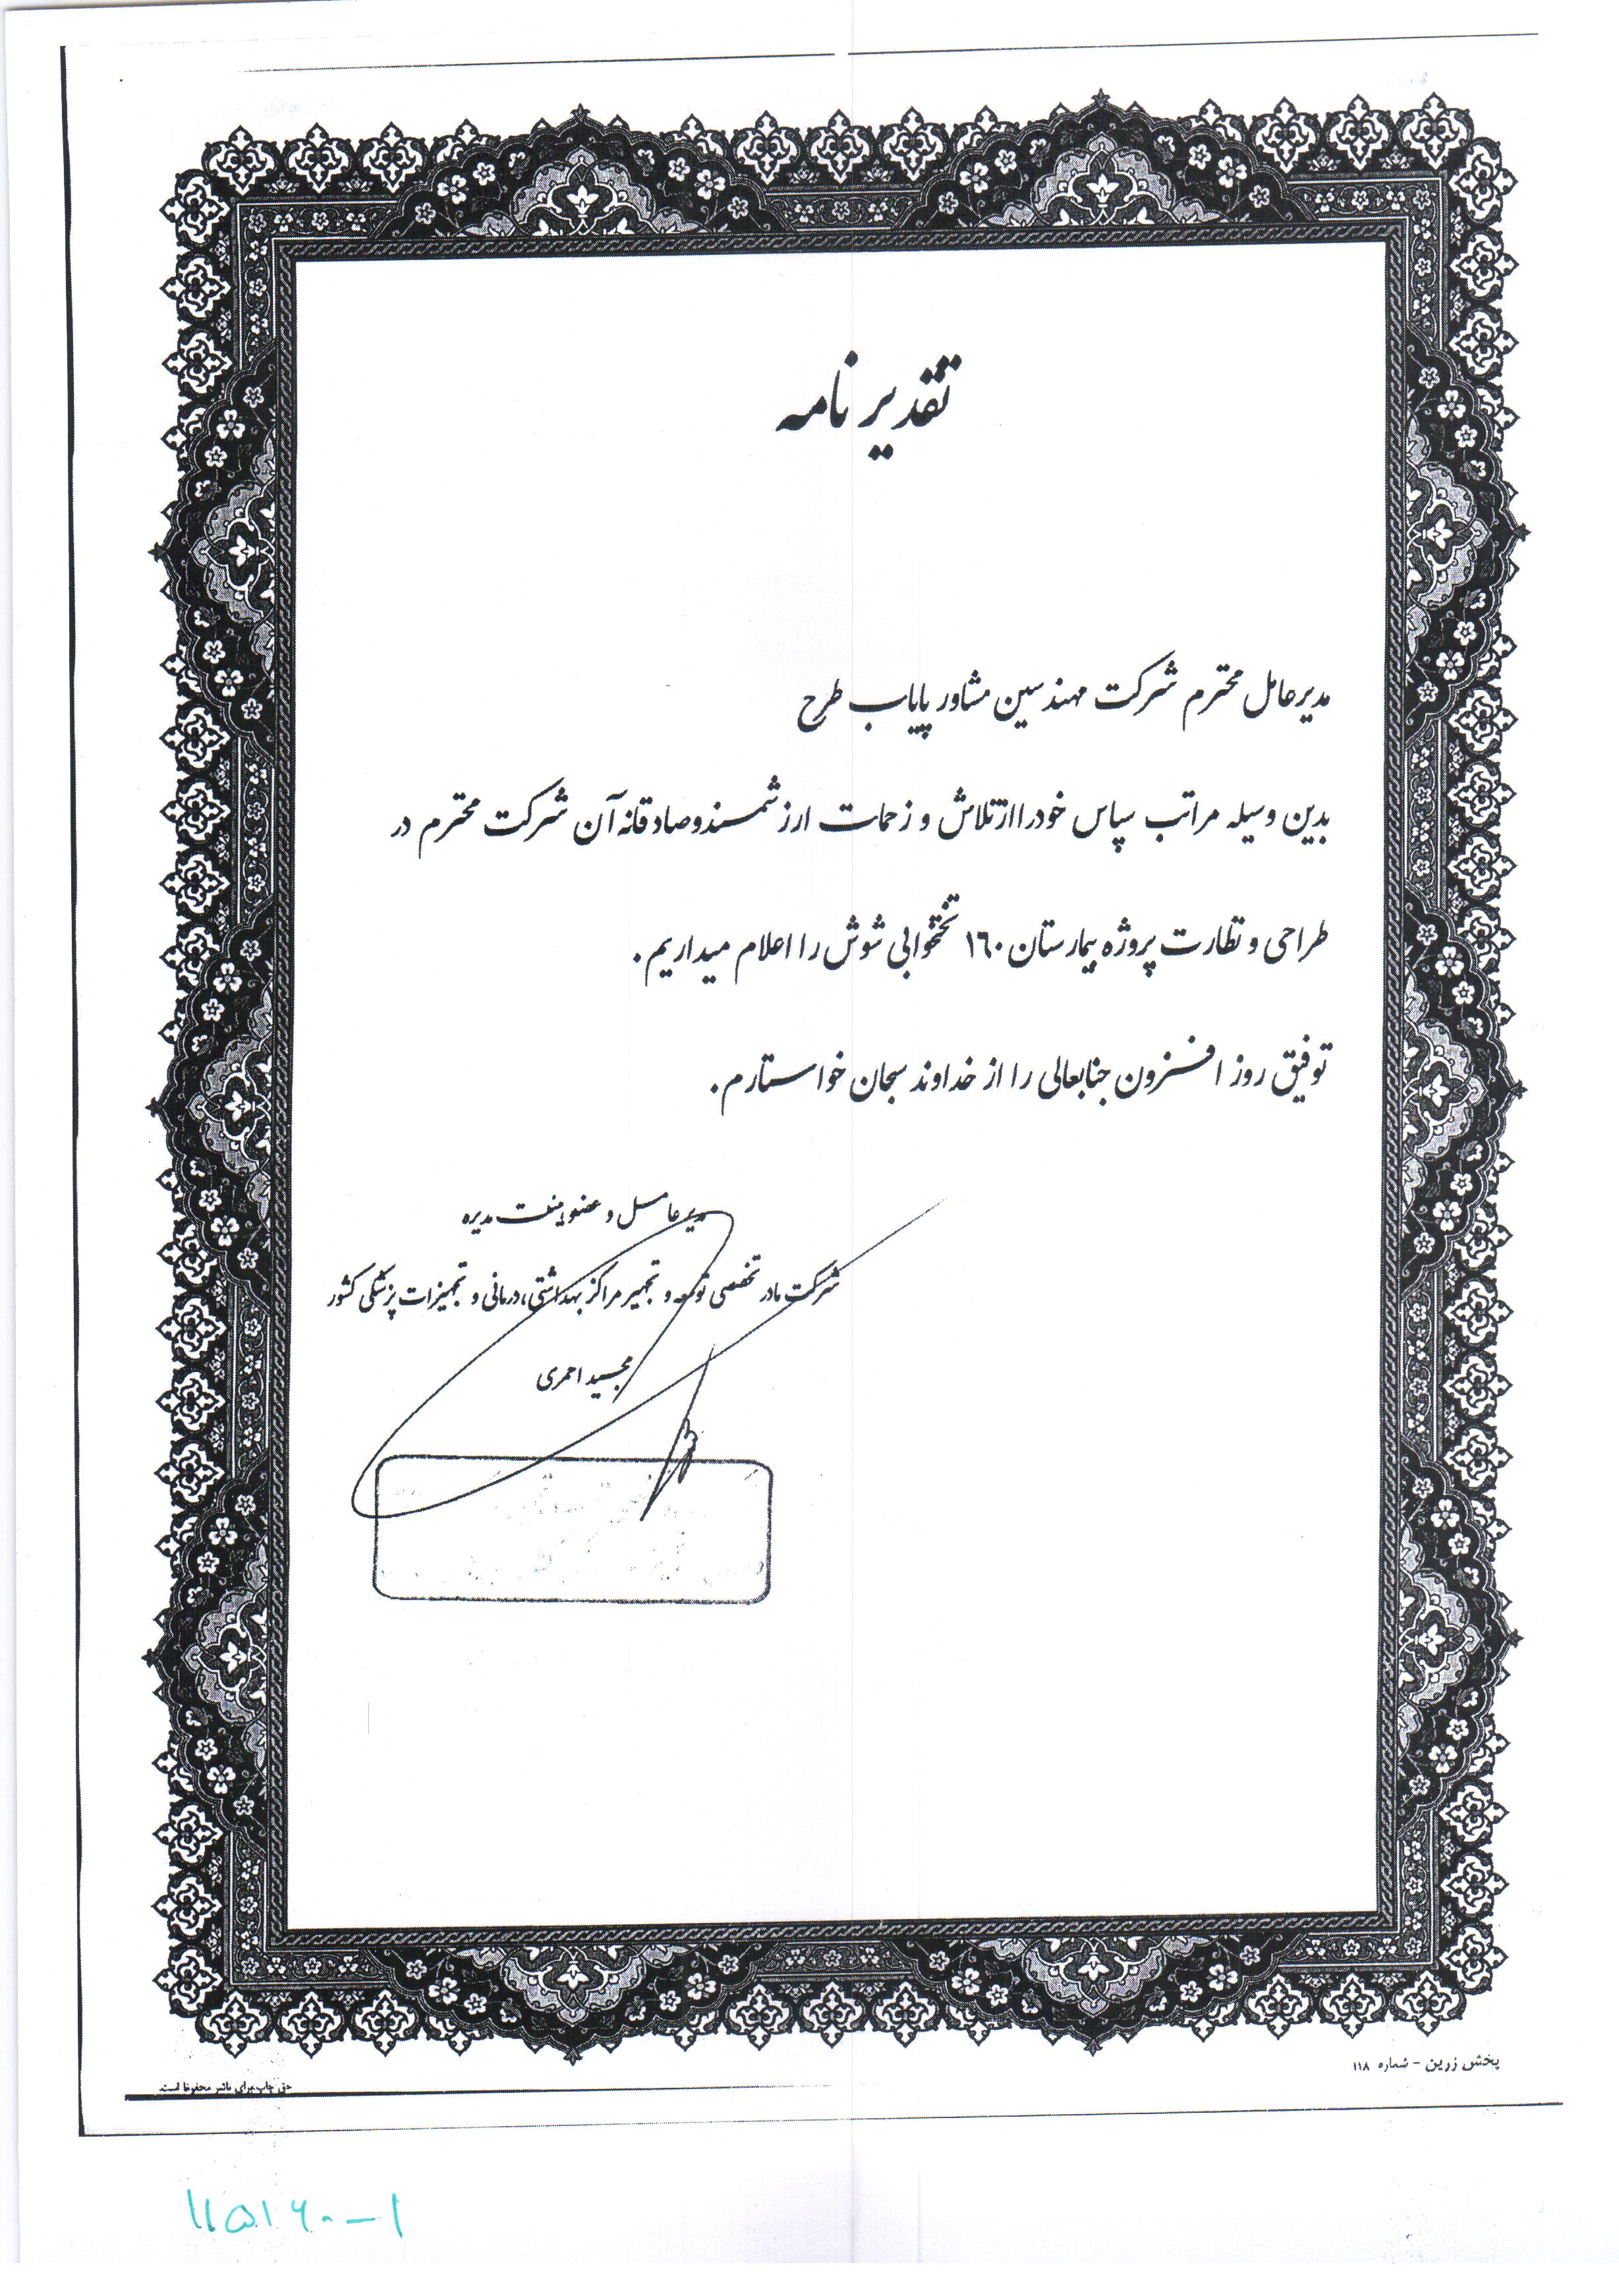 تقدیر نامه
مدیرعامل محترم شرکت مهندسین مشاور پایاب طرح
بدین وسیله مراتب سپاس خودرا ازتلاش و زحمات ارزشمندوصادقانه آن شرکت محترم در
طراحی و نظارت پروژه بیمارستان ۱۶۰ تختخوابی شوش را اعلام میداریم.
توفیق روز افزون جنابعالی را از خداوند سبحان خواستارم.
مدیرعامل و عضو هیئت مدیره
شرکت مادر تخصصی توسعه و تجهیز مراکز بهداشتی، درمانی و تجهیزات پزشکی کشور
مجید احمری
پخش زرین - شماره ۱۱۸
حق چاپ برای ناشر محفوظ است.
۱۱۵۱۶۰-۱